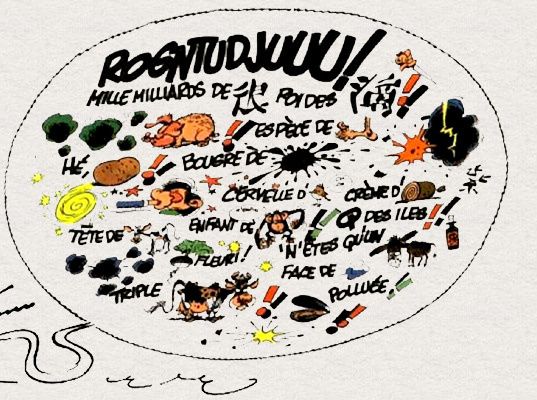 ROGNTUDJUUU!
MILLE MILLIARDS DE ROI DES !!
!! ESPÈCE DE
HÉ, !! BOUGRE DE
CERVELLE D' CRÈME D'
TÊTE DE ENFANT DE !! Q DES ILES !!
FLEURI! 'N'ÊTES QU'UN
FACE DE
TRIPLE !! POLLUÉE, !!